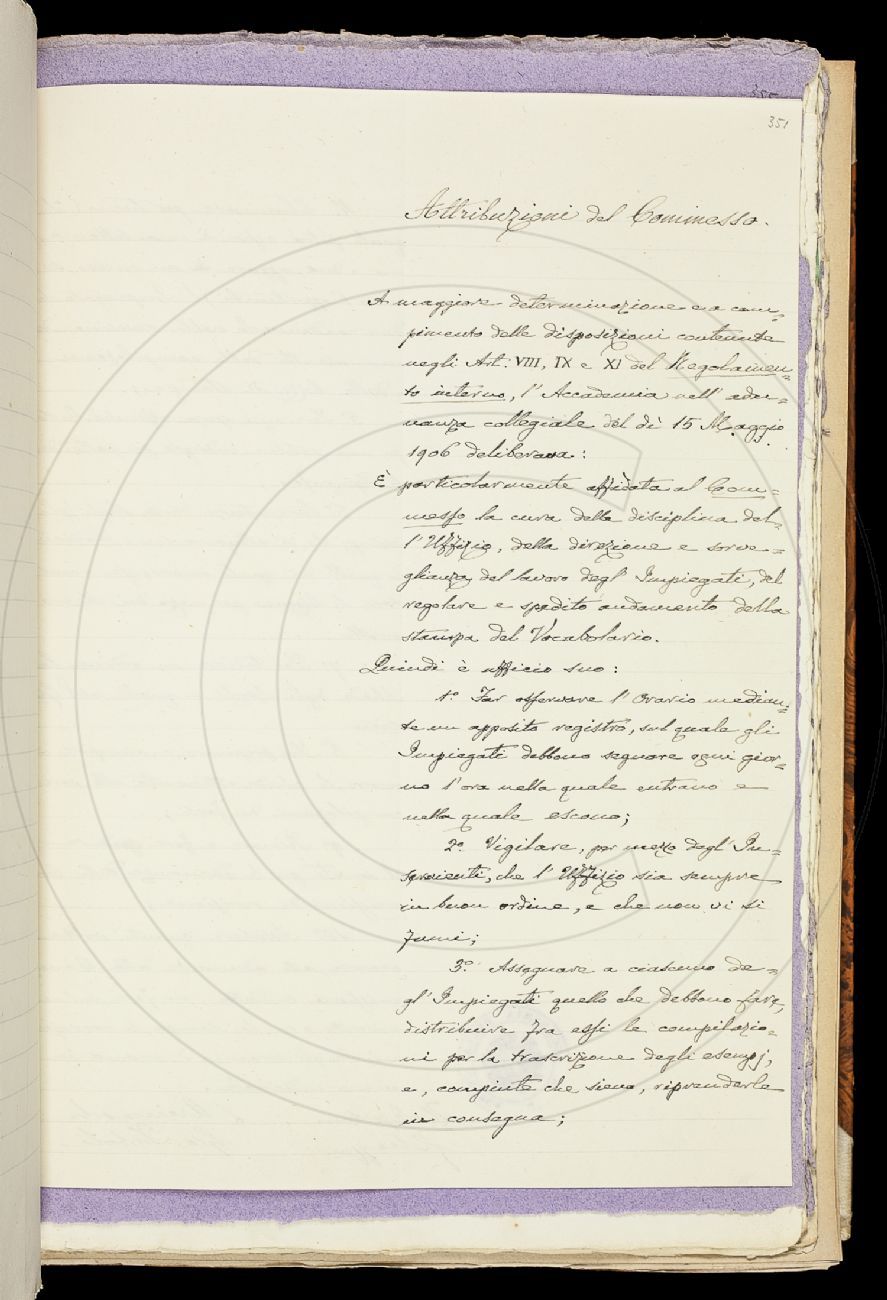 355
351
Attribuzioni del Commesso.
A maggiore determinazione e a com=
pimento delle disposizioni contenute
negli Art. VIII, IX e XI del Regolamen=
to interno, l'Accademia nell'adu=
nanza collegiale del dì 15 Maggio
1906 deliberava:
È particolarmente affidata al Com=
messo la cura della disciplina del=
l'Uffizio, della direzione e sorve=
glianza del lavoro degl'Impiegati, del
regolare e spedito andamento della
stampa del Vocabolario.
Quindi è ufficio suo:
1º Far osservare l'Orario median=
te un apposito registro, sul quale gli
Impiegati debbono segnare ogni gior=
no l'ora nella quale entrano e
nella quale escono;
2º Vigilare, per mezzo degl'In=
servienti, che l'Uffizio sia sempre
in buon ordine, e che non vi si
fumi;
3º Assegnare a ciascuno de=
gl'Impiegati quello che debbono fare,
distribuire fra essi le compilazio=
ni per la trascrizione degli esempj,
e, compiute che sieno, riprenderle
in consegna;